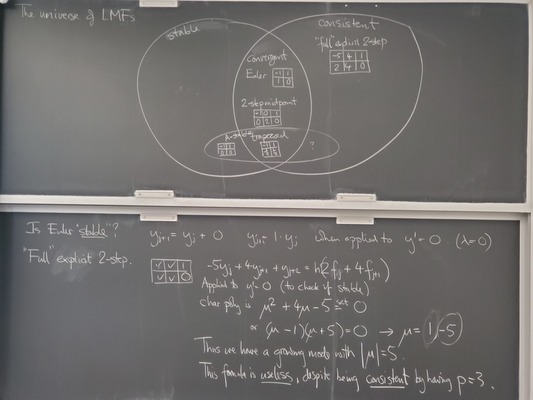 The universe of LMFs
stable
consistent
"full" explicit 2-step
-5 4 1
2 4 0
convergent
Euler
-1 1
1 0
2-step midpoint
-1 0 1
0 2 0
A-stable
trapezoid
-1 1
?
Is Euler "stable"? y_{j+1} = y_j + 0 y_{j+1} = 1·y_j when applied to y' = 0. (λ=0)
"Full" explicit 2-step.
✓ ✓ 1
✓ ✓ 0
-5y_j + 4y_{j+1} + y_{j+2} = h(2f_j + 4f_{j+1})
Applied to y' = 0 (to check if stable)
char poly is μ² + 4μ - 5 set = 0
or (μ-1)(μ+5) = 0 → μ = 1, -5
Thus we have a growing mode with |μ| = 5.
This formula is useless, despite being consistent by having p=3.